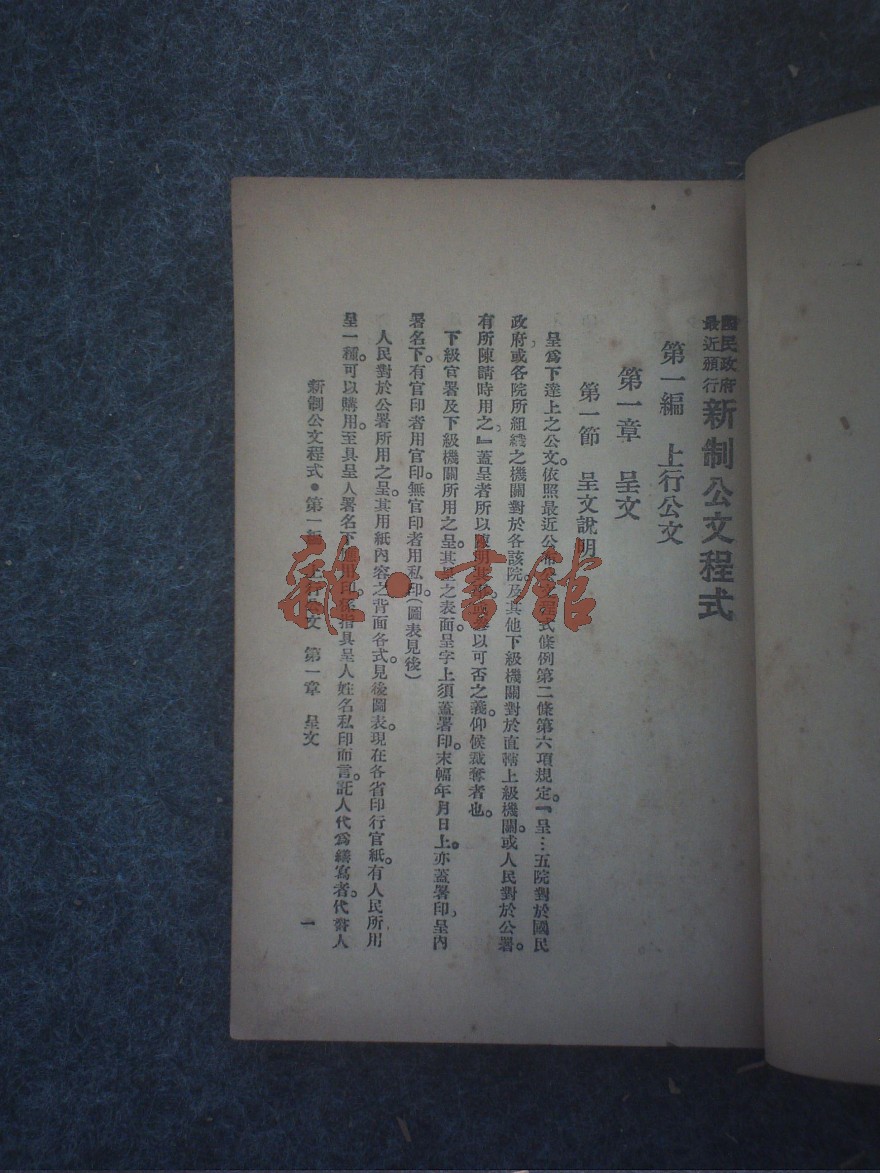 國民政府
最近頒行
新制公文程式
第一編　上行公文
第一章　呈文
第一節　呈文說明
呈爲下達上之公文。依照最近公式條例第二條第六項規定。『呈…五院對於國民
政府或各院所組織之機關對於各該院及其他下級機關對於直轄上級機關。或人民對於公署。
有所陳請時用之。』蓋呈者所以陳明其以可否之義。仰候裁奪者也。
下級官署及下級機關所用之呈。其之表面呈字上須蓋署印。末幅年月日上。亦蓋署印。呈內
署名下。有官印者用官印。無官印者用私印。(圖表見後)
人民對於公署所用之呈。其用紙內容之背面各式。見後圖表。現在各省印行官紙。有人民所用
呈一種。可以購用。至具呈人署名下印。係指具呈人姓名私印而言。託人代爲繕寫者。代書人
新制公文程式●第一編　上行公文　第一章　呈文
一
雜·書館